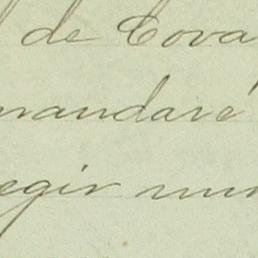 de Cova
mandaré
egir mu